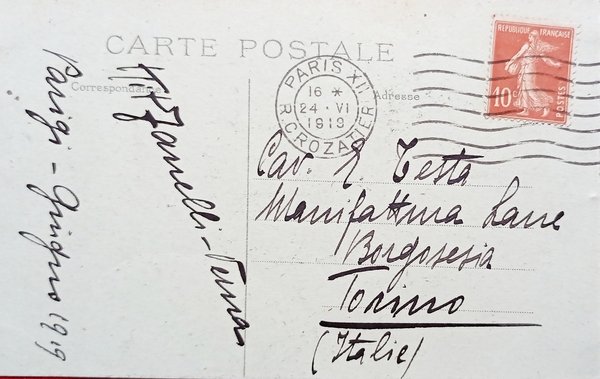 CARTE POSTALE
Correspondance
Adresse
PARIS XII
16 *
24 · VI
1919
R. CROZATIER
REPUBLIQUE FRANÇAISE
10c
POSTES
Parigi - Giugno 1919
Zanelli-
Cav. E. Testa
Manifattura Lane
Borgosesia
Torino
(Italie)